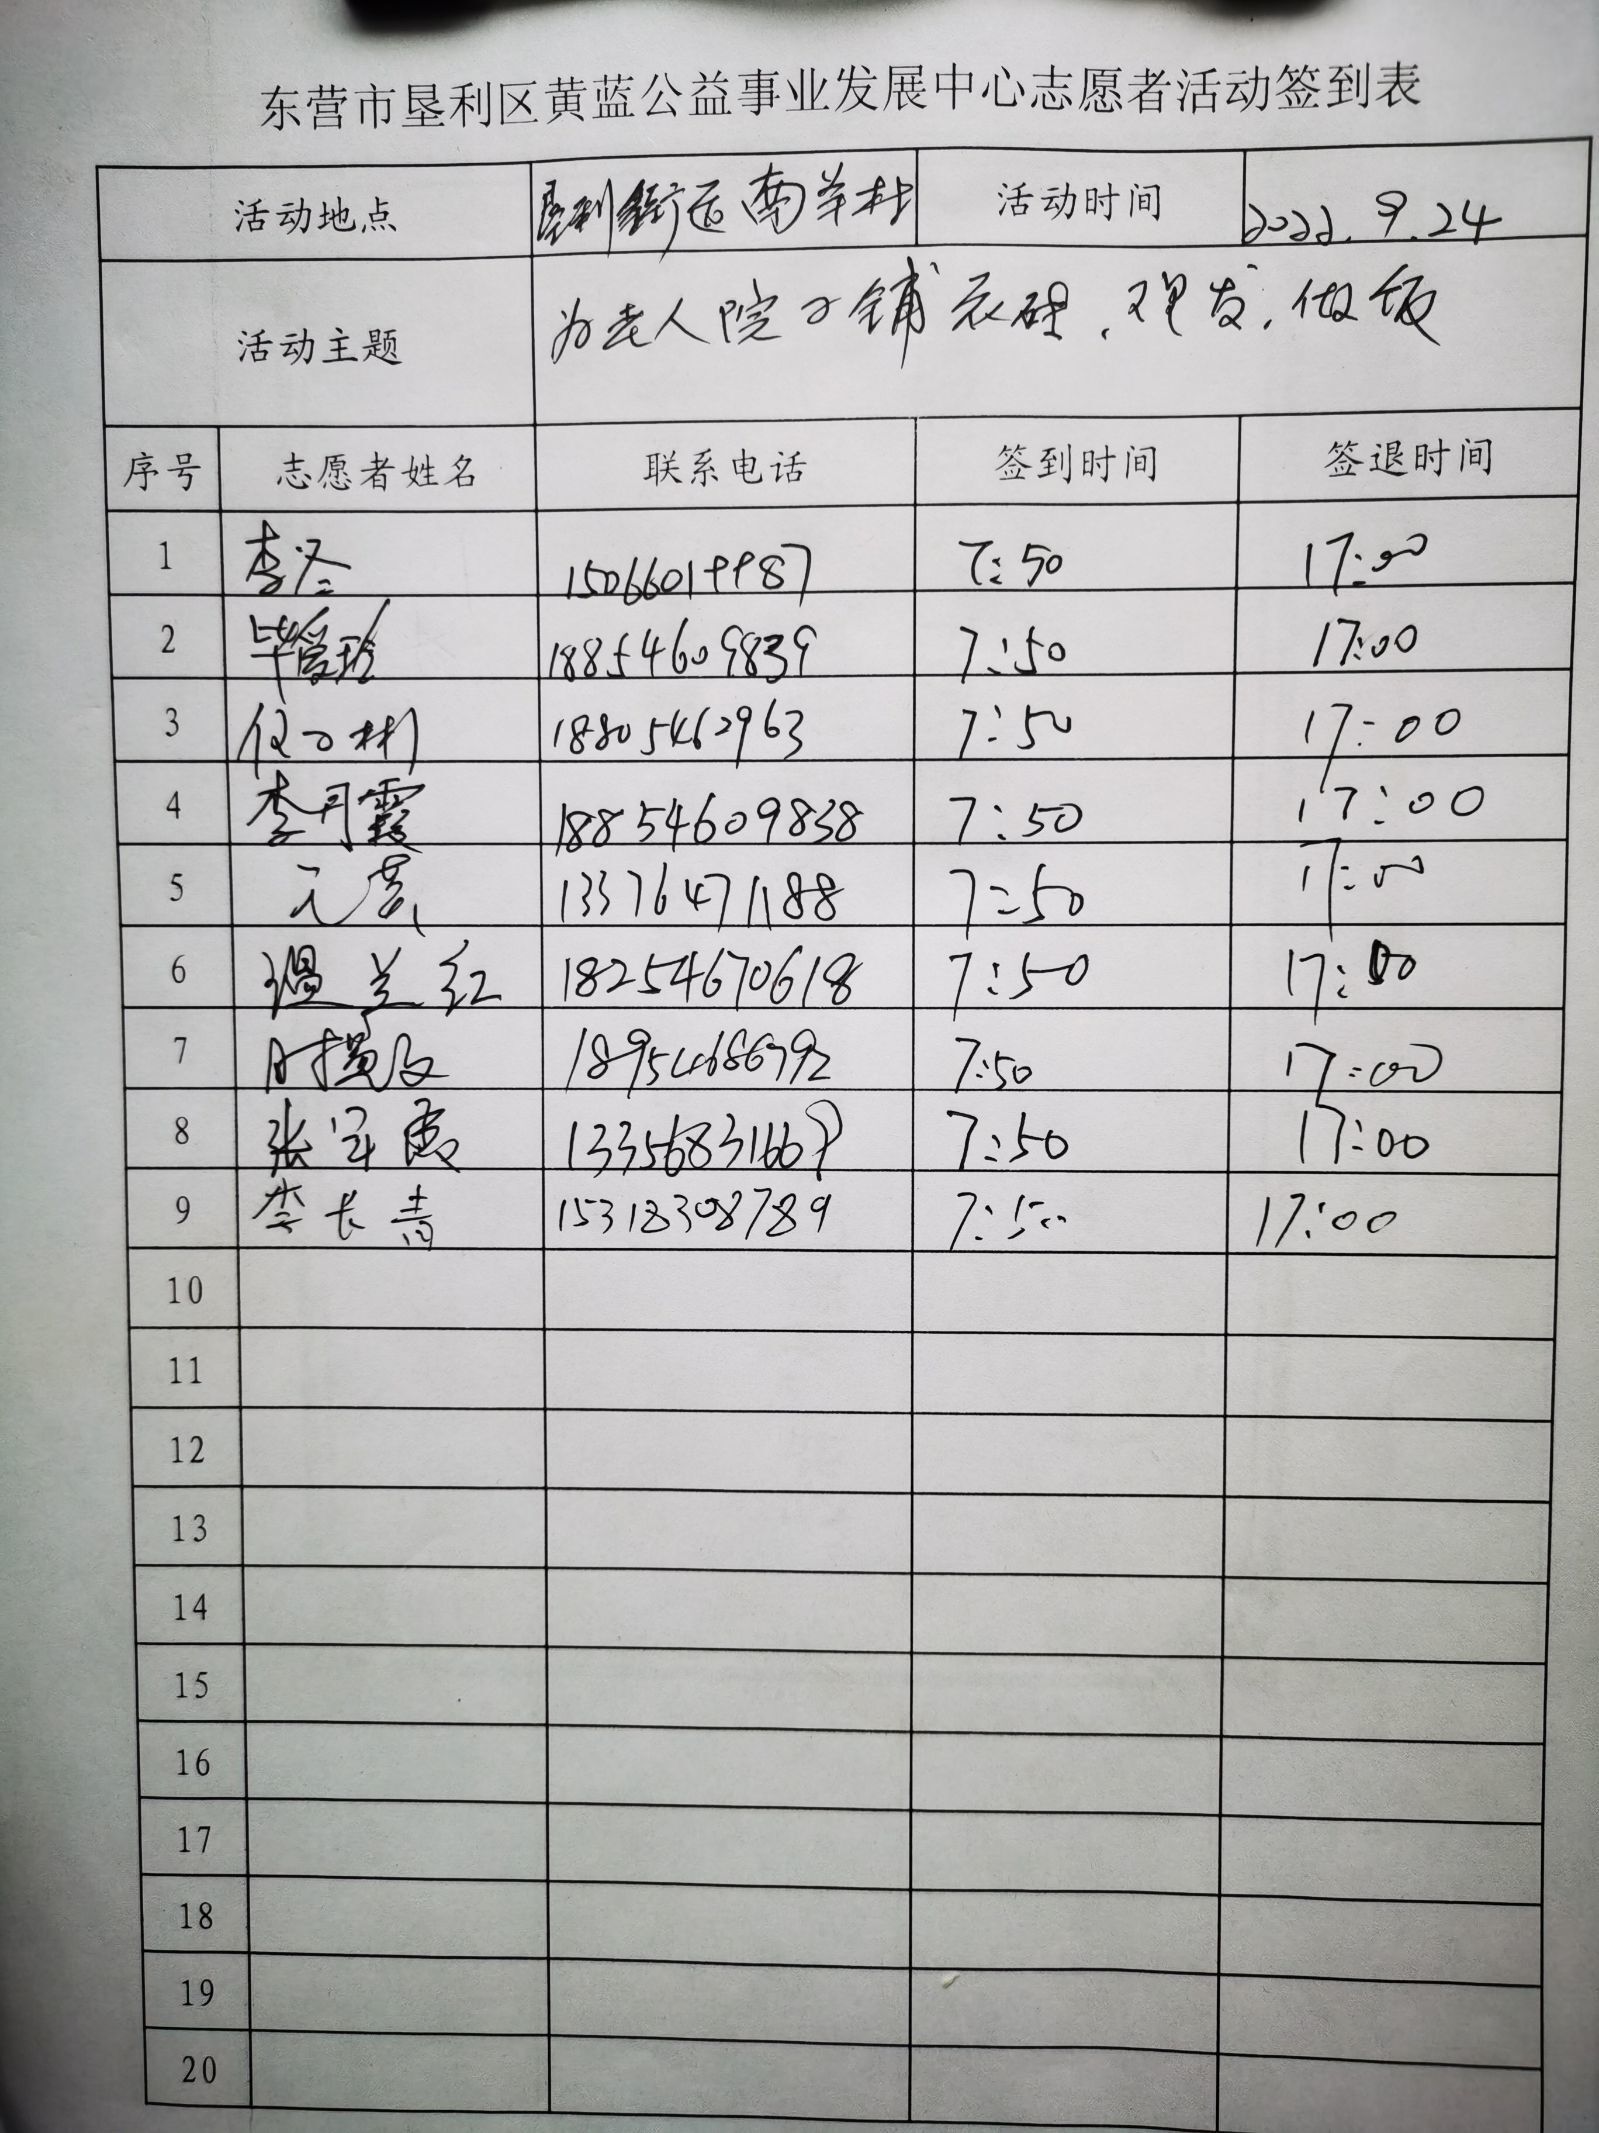 东营市垦利区黄蓝公益事业发展中心志愿者活动签到表
活动地点 垦利街道南羊村 活动时间 2022.9.24
活动主题 为老人院子铺 砖,理发,做饭
序号 志愿者姓名 联系电话 签到时间 签退时间
1 李冬 15066019987 7:50 17:00
2 毕爱玲 18854609839 7:50 17:00
3 彬 18805462963 7:50 17:00
4 李月霞 18854609838 7:50 17:00
5 13376471188 7:50 17:00
6 温兰红 18254670618 7:50 17:00
7 7:50 17:00
8 张军霞 7:50 17:00
9 李长青 15318308789 7:50 17:00
10
11
12
13
14
15
16
17
18
19
20